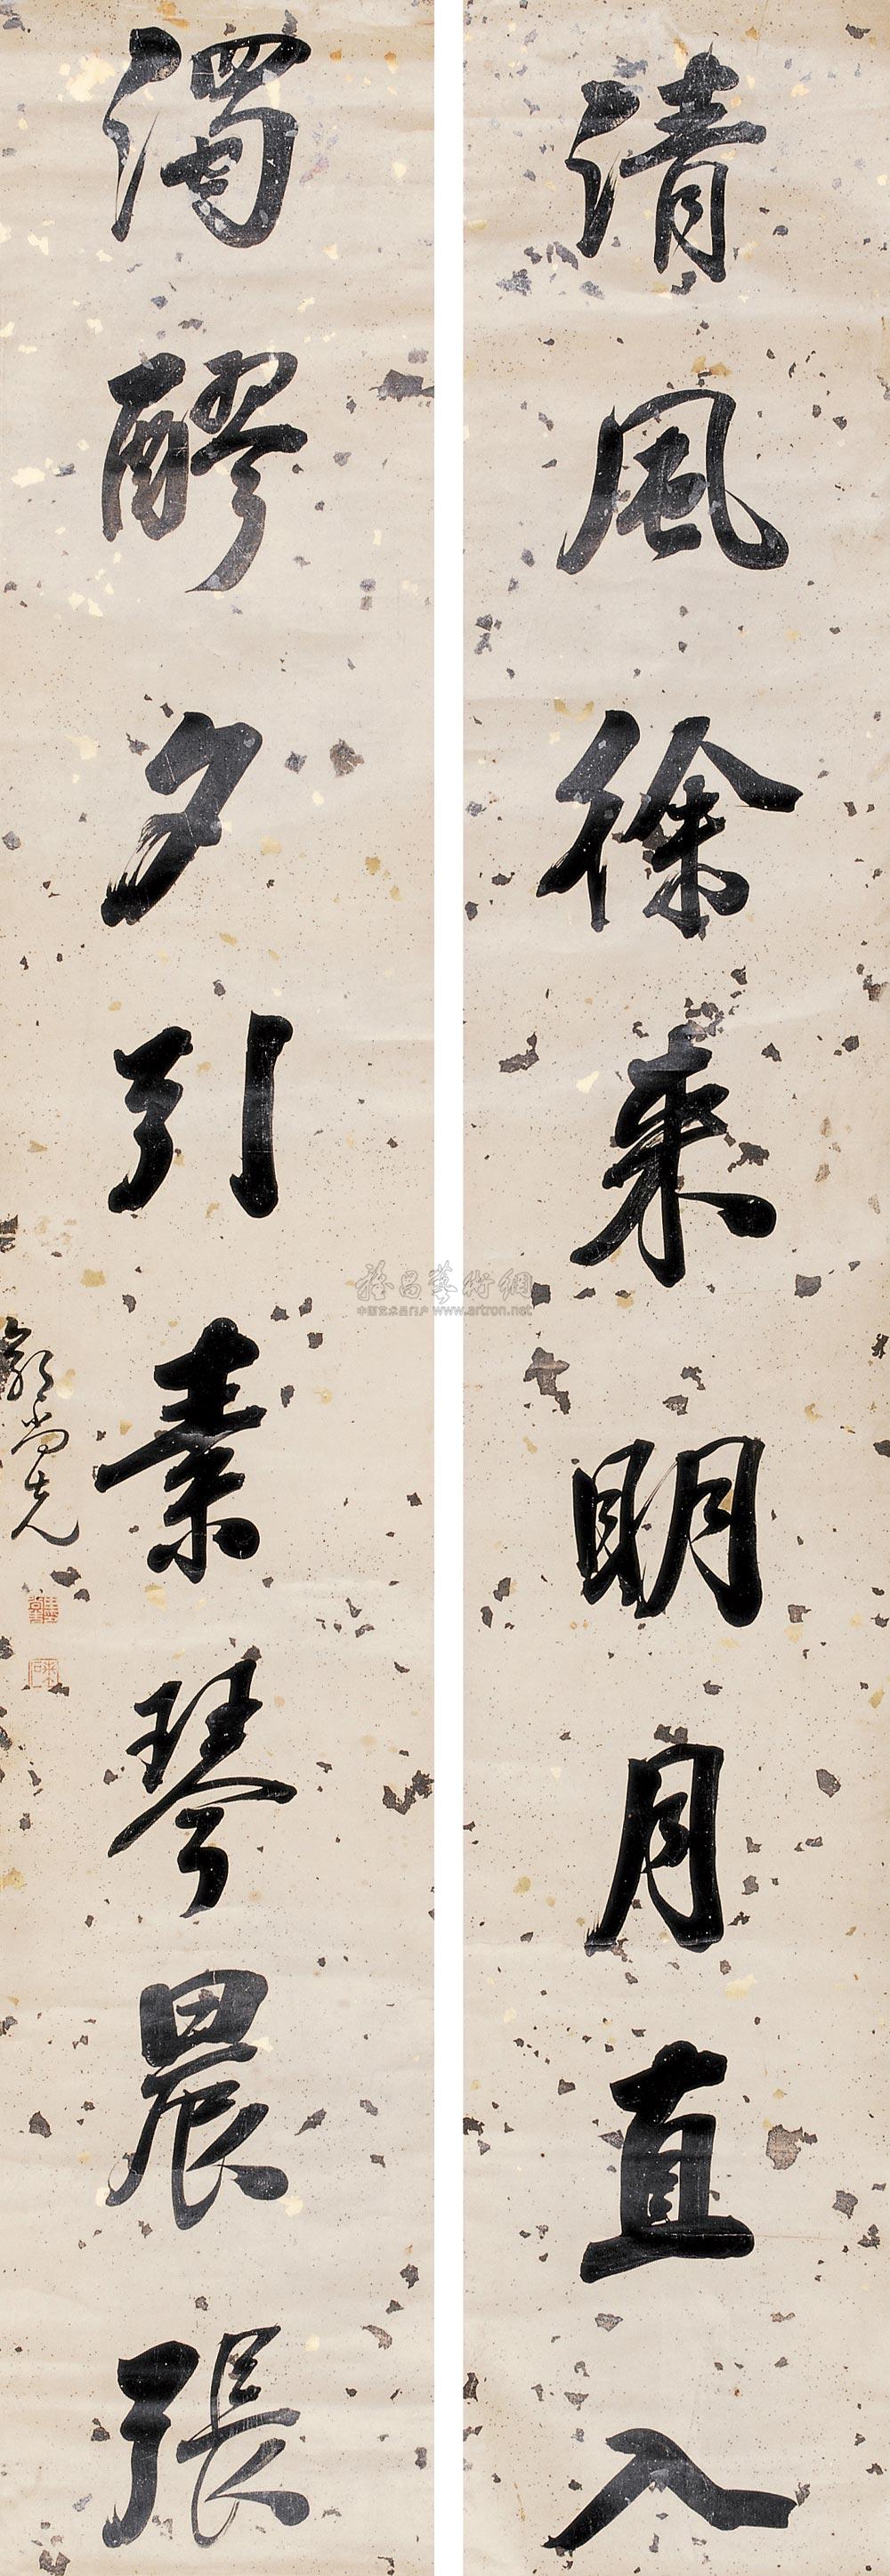 清風徐来明月直入
濁醪夕引素琴晨張
雅昌藝術網
中国艺术品门户 www.artron.net